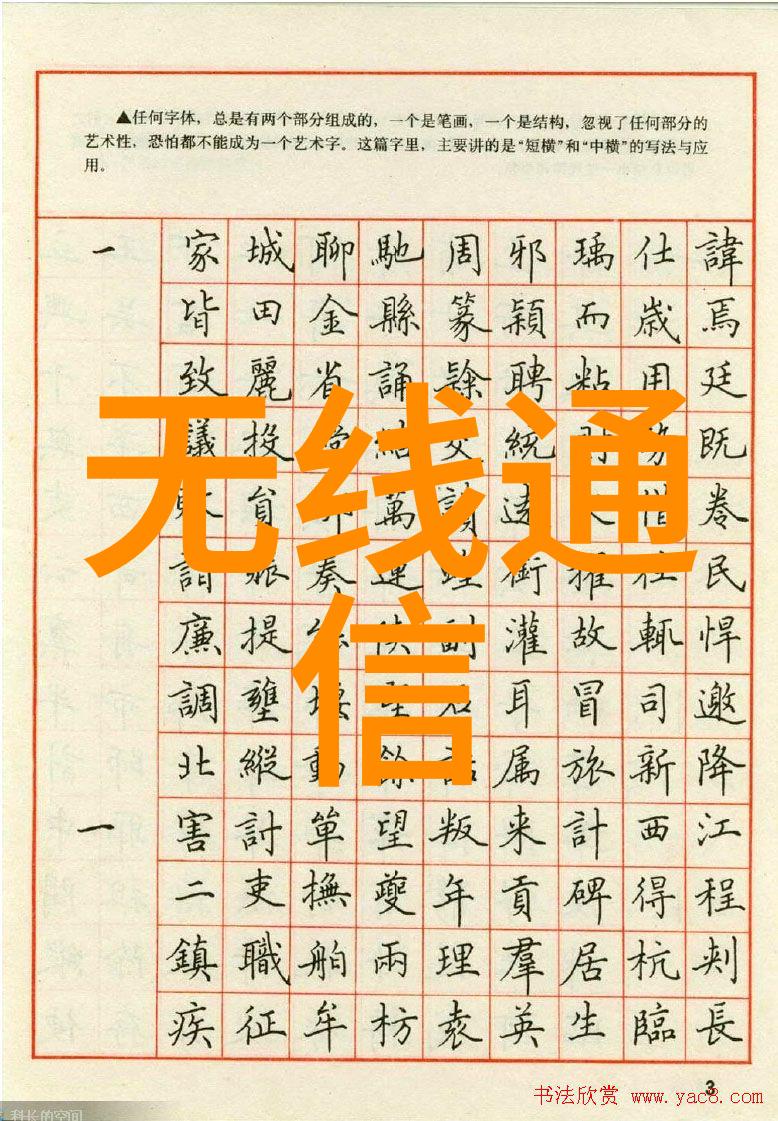 ▲任何字体，总是有两个部分组成的，一个是笔画，一个是结构，忽视了任何部分的
艺术性，恐怕都不能成为一个艺术字。这篇字里，主要讲的是“短横”和“中横”的写法与应
用。
一 家 城 聊 馳 周 邪 瑀 仕 諱
皆 田 金 縣 篆 穎 而 歲 焉
致 麗 省 誦 聘 粘 用 廷
議 投 統 既
貟 萬 卷
詣 奏 衝 民
廉 提 副 灌 故 輒 悍
調 壅 耳 冒 司 邀
北 縱 動 餘 属 旅 新 降
一 害 討 單 望 叛 来 計 西 江
二 吏 撫 夔 年 貢 碑 得 程
鎮 職 舶 兩 理 羣 居 杭 刺
疾 征 牟 枋 袁 英 生 臨 長
无线通
信
3
书法欣赏 www.yac8.com
科长的空间